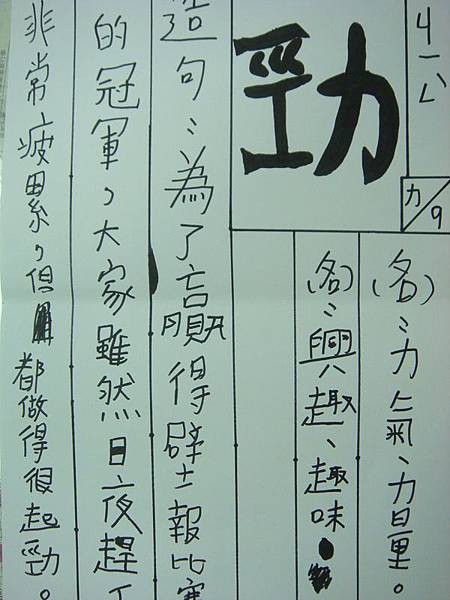 勁
ㄐㄧㄥˋ
力/9
(名)：力氣、力量。
(名)：興趣、趣味。
造句：為了贏得壁報比賽
的冠軍，大家雖然日夜趕工
非常疲累，但都做得很起勁。